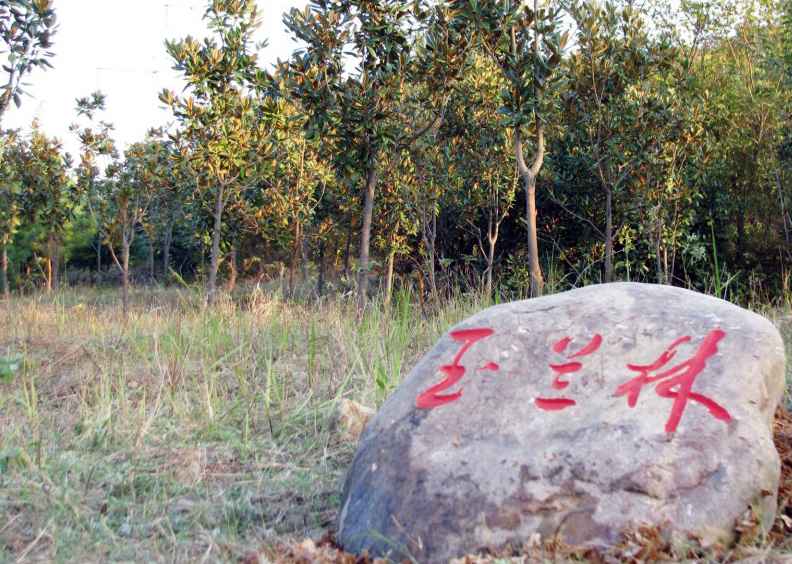 玉兰林